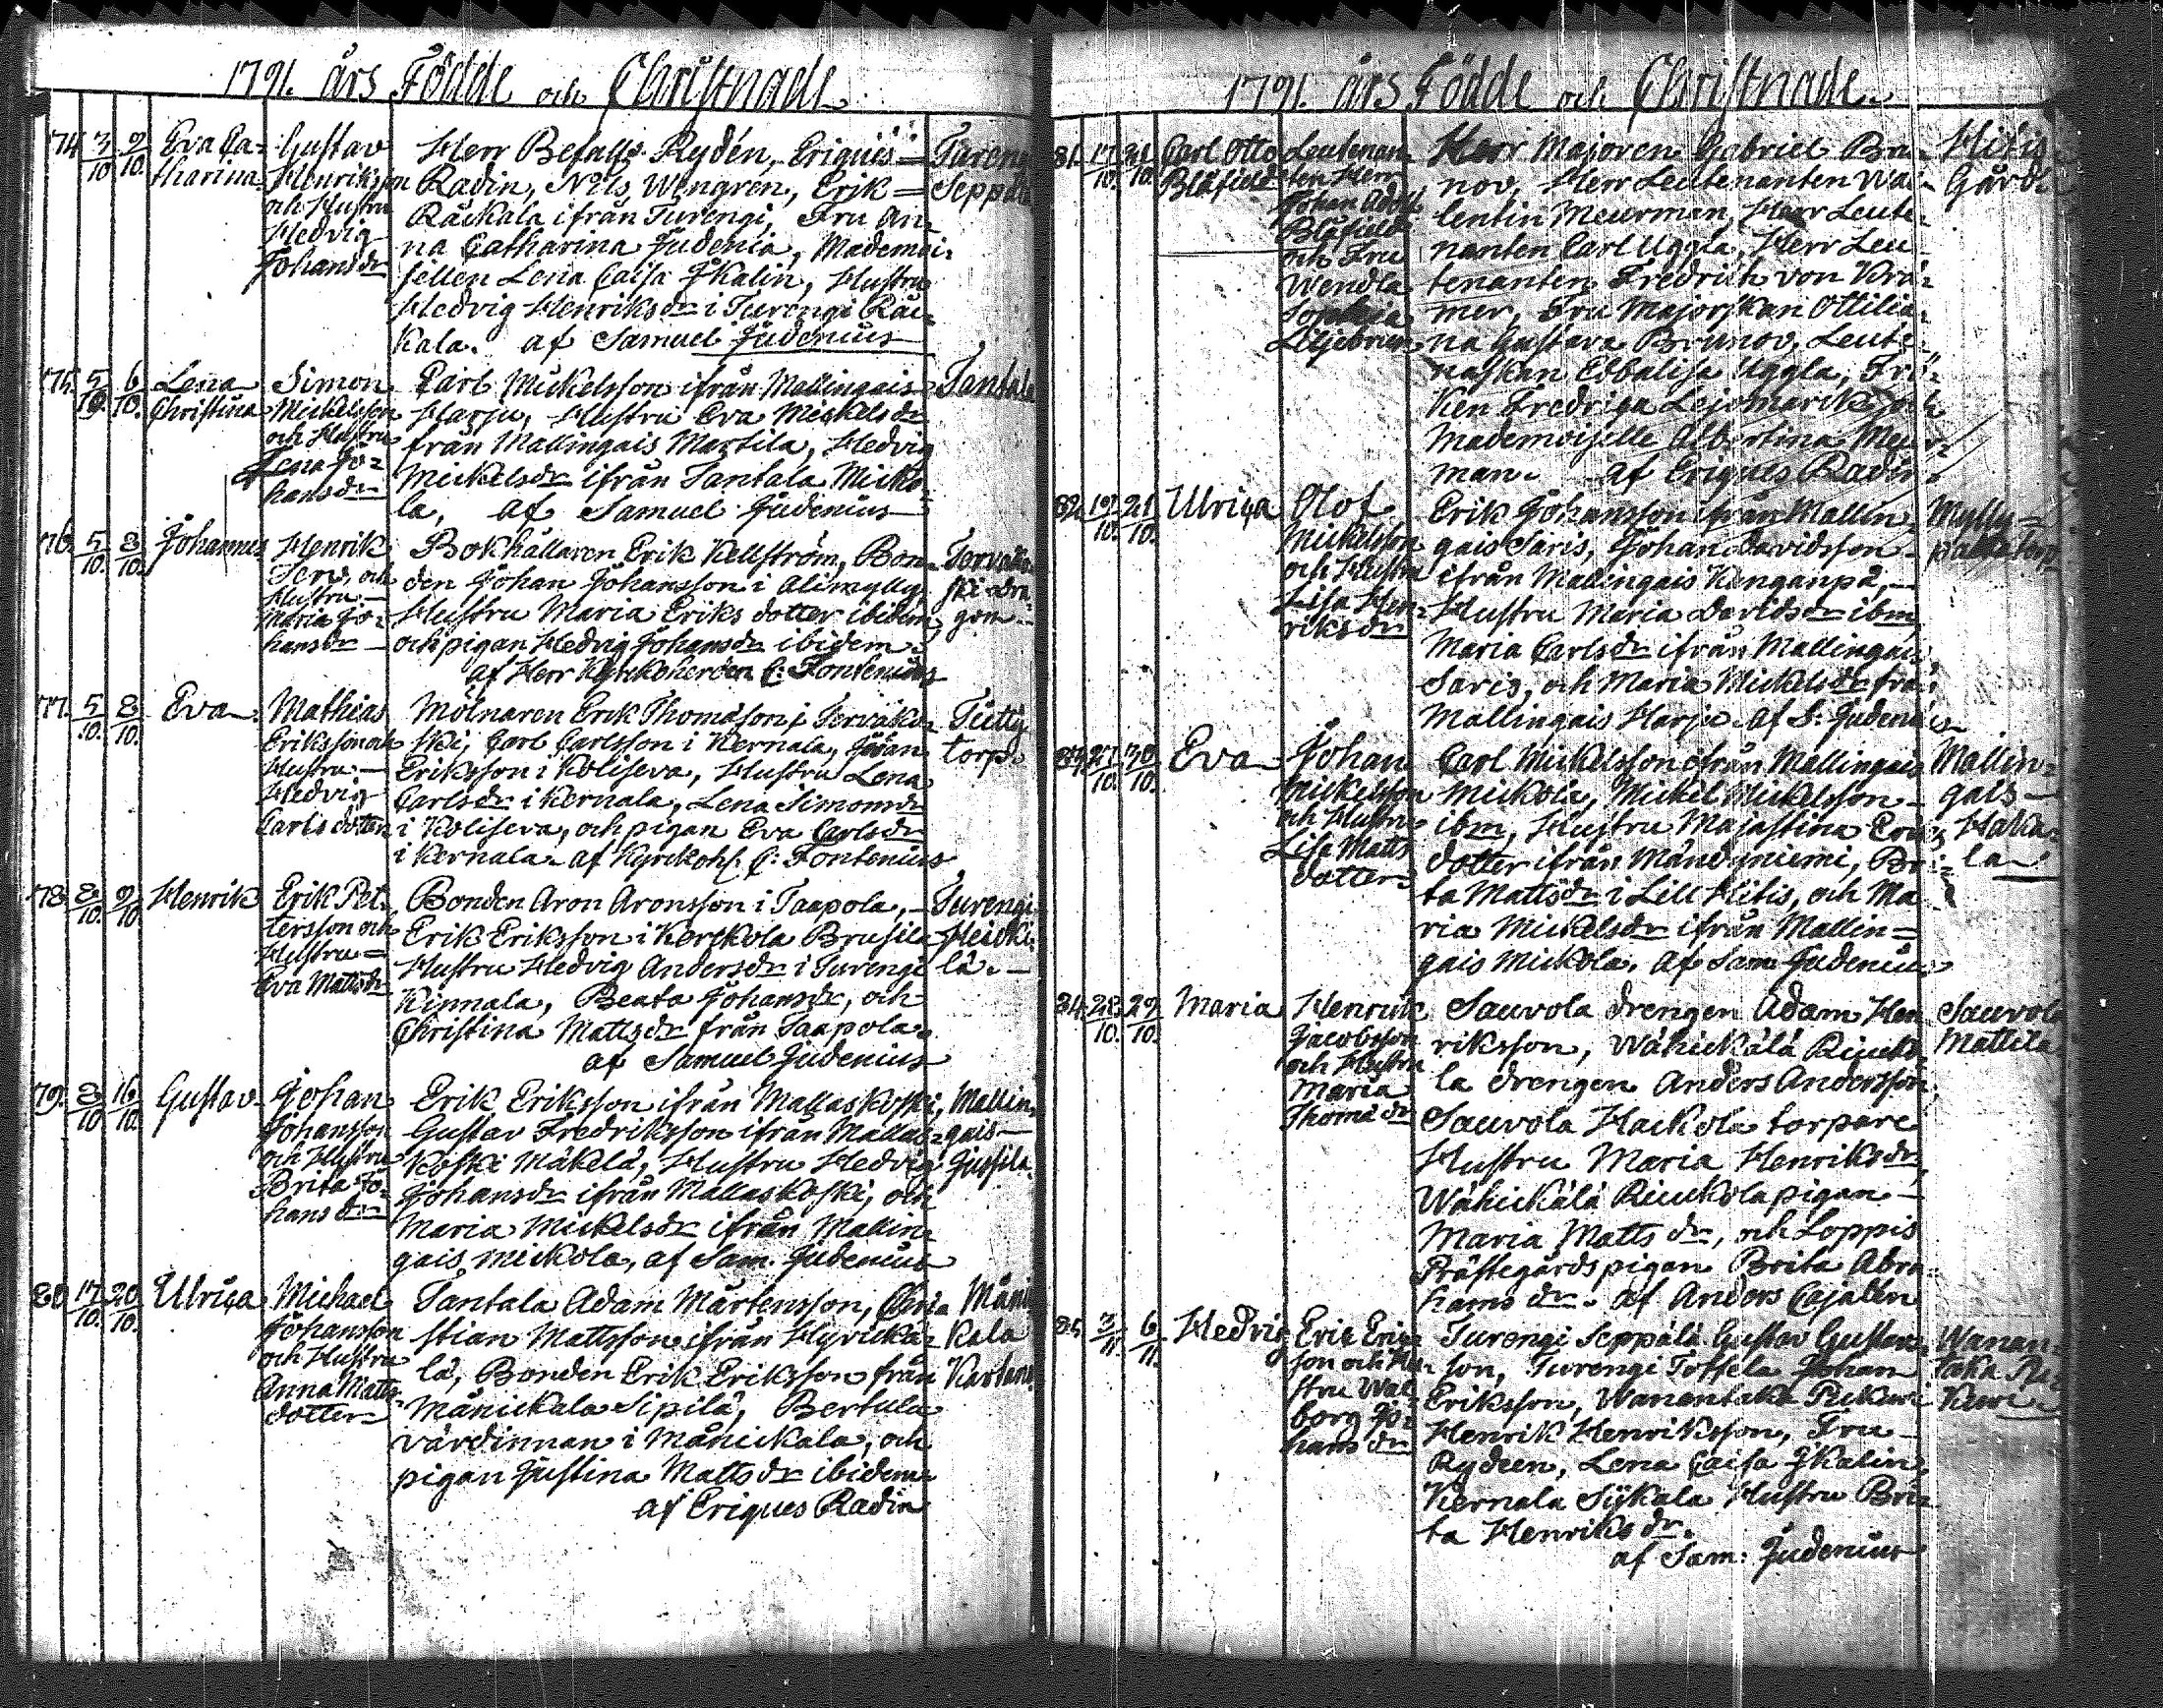 1791. års Födde och Christnade
74 3/10 9/10. Eva Ca=
tharina
Gustav
Henriksson
och Hustru
Hedvig
Johansdr
Herr Befallg. Rydén, Eriques =
Radin, Nils Wengren, Erik =
Räckala ifrån Turengi, Fru An=
na Catharina Judenia, Mademoi=
sellen Lena Caisa Skalin, Hustru
Hedvig Henriksdr i Turengi Räc=
kala. af Samuel Judenius
Tureng
Seppälä
75. 5/10. 6/10. Lena
Christina
Simon
Mickelsson
och Hustru
Lena Jo=
hansdr
Carl Mickelsson ifrån Mallingais
Harju, Hustru Eva Mickelsdr
från Mallingais Martila, Hedvig
Mickelsdr ifrån Tantala Micko=
la, af Samuel Judenius
Tantala
76. 5/10. 8/10. Johannes
Henrik
Serv, och
Hustru
Maria Jo=
hansdr
Bokhållaren Erik Kellström, Bon=
den Johan Johansson i Alimylly
Hustru Maria Eriks dotter ibidem,
och pigan Hedvig Johansdr ibidem.
af Herr Kyrckoherden C: Fontenius
Tervako=
ski dra=
gon
77. 5/10. 8/10. Eva
Mathias
Eriksson och
Hustru
Hedvig
Carls dotter
Mölnaren Erik Thomasson i Tervako=
ski, Carl Carlsson i Kernala, Johan
Eriksson i Koliseva, Hustru Lena
Carlsdr i Kernala, Lena Simonsdr
i Koliseva, och pigan Eva Carlsdr
i Kernala. af Kyrckoh. C: Fontenius
Tutty
torp.
78. 8/10. 9/10 Henrik
Erik Pet=
tersson och
Hustru =
Eva Mattsdr
Bonden Aron Aronsson i Taapola,
Erik Eriksson i Kerckola Brusila
Hustru Hedvig Andersdr i Turengi
Kinnala, Beata Johansdr, och
Christina Mattsdr från Taapola.
af Samuel Judenius
Turengi
Heicki=
lä.
79. 8/10 16/10. Gustav
Johan
Johansson
och Hustru
Brita Jo=
hans dr
Erik Eriksson ifrån Mallaskoski,
Gustav Fredriksson ifrån Mallas=
koski Mäkelä, Hustru Hedvig
Johansdr ifrån Mallaskoski, och
Maria Mickelsdr ifrån Mallin=
gais Mickola, af Sam. Judenius
Mallin=
gais
Jussila.
80 17/10. 20/10. Ulrica
Michael
Johansson
och Hustru
Anna Matts=
dotter
Tantala Adam Mårtensson, Chri=
stian Mattsson ifrån Hyvickä=
lä, Bonden Erik Eriksson från
Mänickala Sipilä, Bertula
värdinnan i Mänickala, och
pigan Justina Mattsdr ibidem
af Eriques Radin
Mäni
kala
Kartano
1791. års Födde och Christnade
81. 17/10. 21/10. Carl Otto
Blåfield
Leutenan=
ten Herr
Johan Adolf
Blåfield
och Fru
Wendla
Sophia
Liljebrun
Herr Majoren Gabriel Bru=
nov, Herr Leutenanten Wal=
lentin Meurman, Herr Leute=
nanten Carl Uggla, Herr Leu=
tenanten Fredrich von Krä=
mer, Fru Majorskan Ottilia=
na Gustava Brunov, Leute=
naskan Ebbalisa Uggla, Frö=
ken Fredrica Lejomarck och
Mademoiselle Albertina Meur=
man. af Eriques Radin.
Hitis
Gård
82. 19/10. 21/10. Ulrica
Olof
Mickelsson
och Hustru
Lisa Hen=
riksdr
Erik Johansson ifrån Mallin=
gais Saris, Johan Davidsson
ifrån Mallingais Kenganpä,
Hustru Maria Davidsdr ibm,
Maria Carlsdr ifrån Mallingais
Saris, och Maria Mickelsdr från
Mallingais Harju. af S: Judenius
Mylly=
torp
83. 27/10. 30/10. Eva
Johan
Mickelsson
och Hustru
Lisa Matts
dotter
Carl Mickelsson ifrån Mallingais
Mickola, Mickel Mickelsson
ibm, Hustru Majastina Erics
dotter ifrån Mändyniemi, Bri=
ta Mattsdr i Lill Hitis, och Ma=
ria Mickelsdr ifrån Mallin=
gais Mickola. af Sam Judenius
Mallin=
gais
Haka=
la
84. 28/10. 29/10. Maria
Henrick
Jacobsson
och Hustru
Maria
Thoma dr
Sauvola drengen Adam Hen=
riksson, Wähickälä Riucko=
la drengen Anders Andersson,
Sauvola Hackola torpare
Hustru Maria Henriksdr,
Wähickälä Riuckola pigan
Maria Matts dr, och Loppis
Prästegårds pigan Brita Abra=
hams dr. af Anders Cajalén
Sauvola
Mattila
85. 3/11. 6/11. Hedvig
Eric Erics=
son och Hu=
stru Wal=
borg Jo=
hans dr
Turengi Seppälä Gustav Gustavs=
son, Turengi Toffela Johan
Eriksson, Wanantaka Pickuri
Henrik Henriksson, Fru
Rydeen, Lena Caisa Skalin,
Kernala Sÿkala Hustru Bri=
ta Henriksdr.
af Sam: Judenius
Wanan=
taka